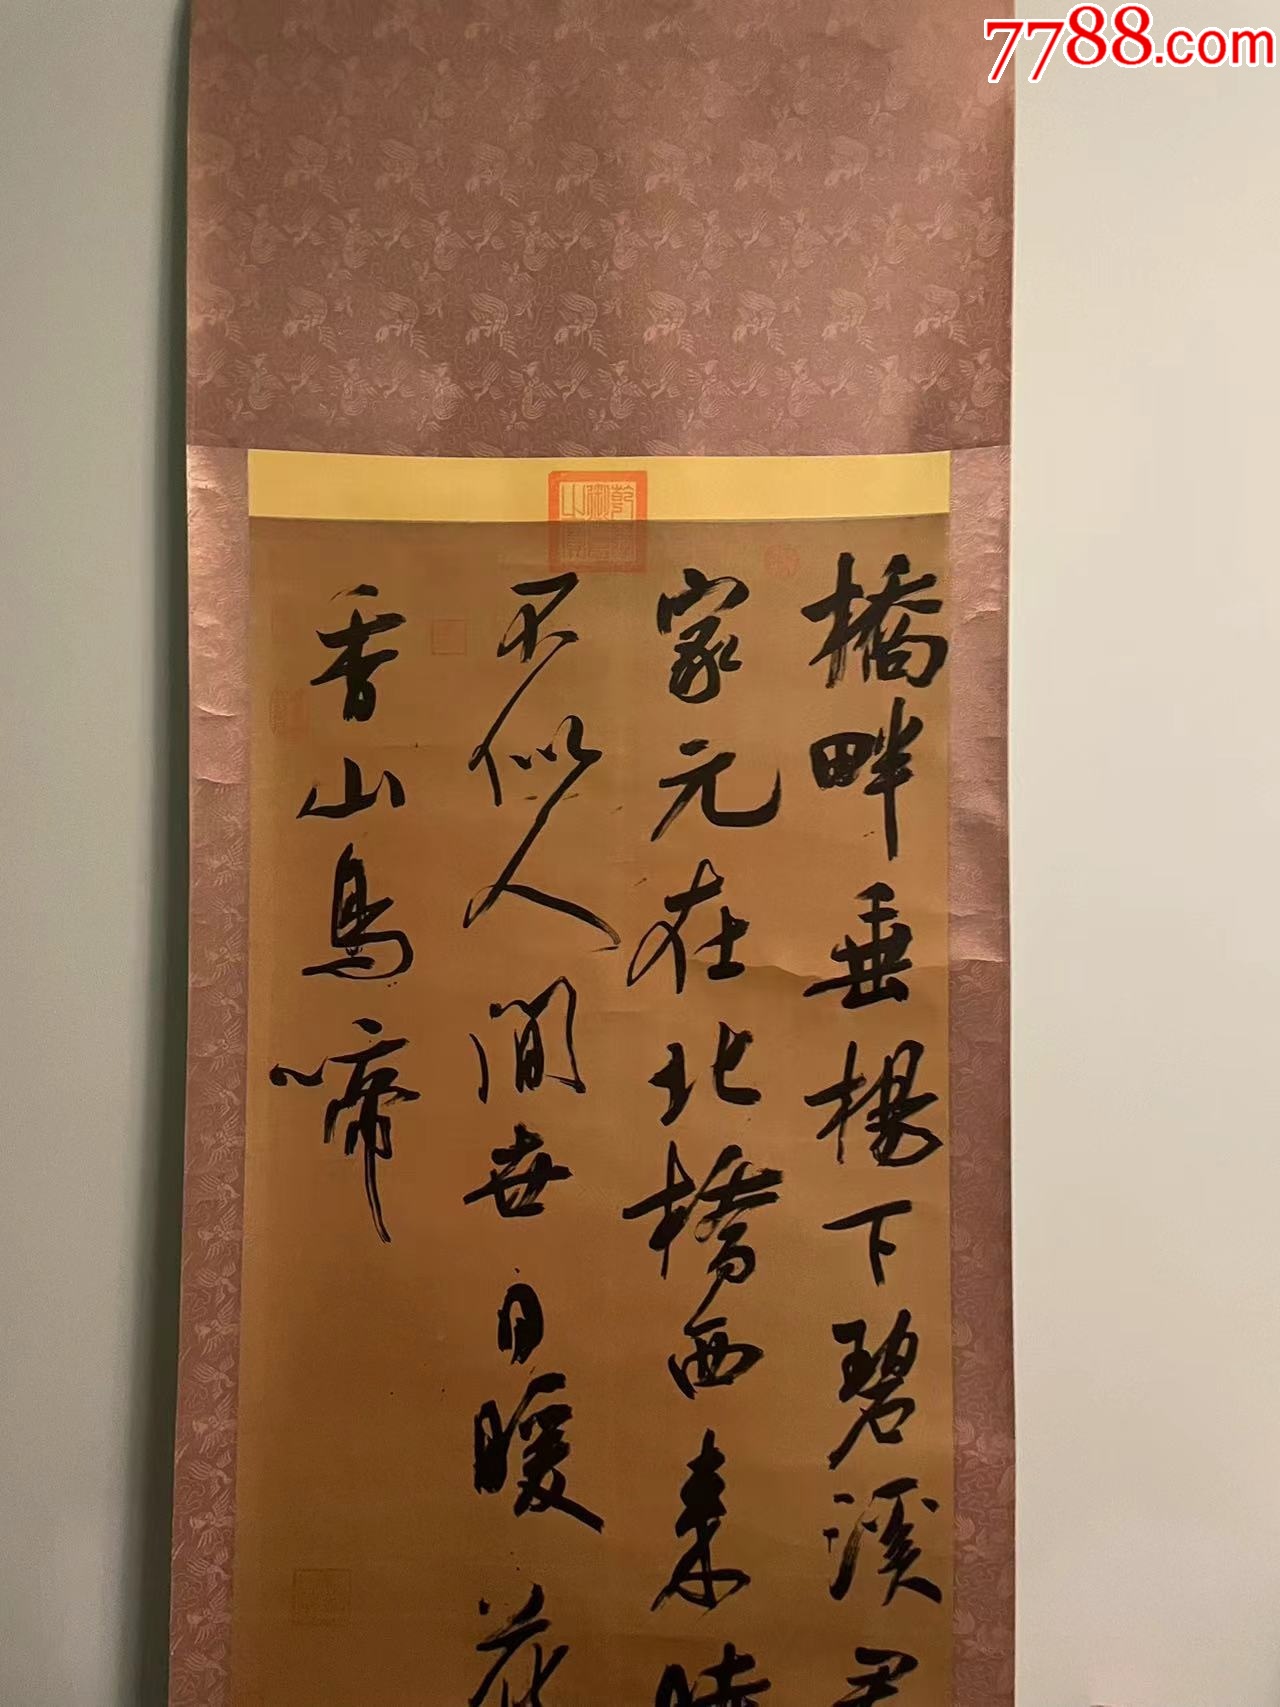 7788.com
橋畔垂楊下碧溪君
家元在北橋西來時
不似人間世日暖花
香山鳥啼